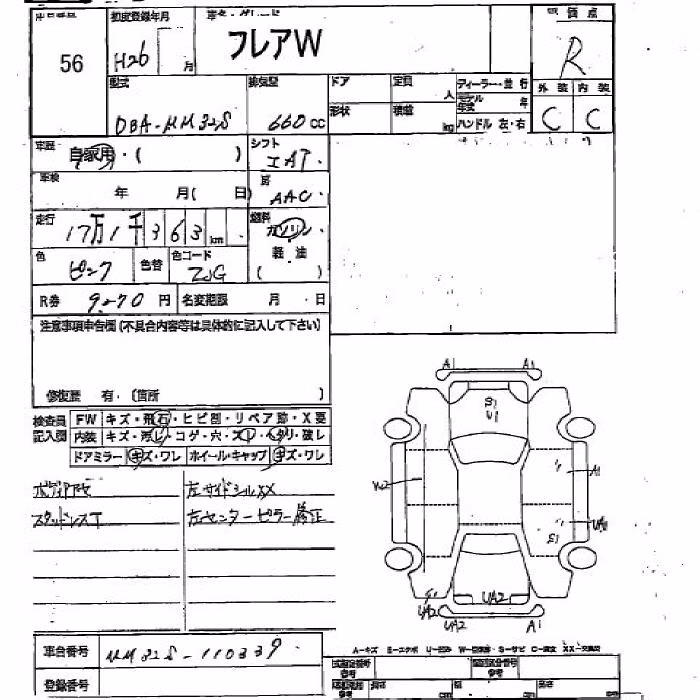 初度登録年月
評価点
56
H26 月
フレアW
R
型式
排気量
ドア
定員
人
ディーラー・並行
モデル年式 年
外装 内装
DBA-MM32S
660cc
形状
積載
kg
ハンドル 左・右
C C
車歴 自家用・( )
シフト
IAT
車検 年 月( 日)
AAC
走行 17万1千363km
燃料
ガソリン
軽油
( )
色
ピンク
色替
色コード
ZJG
R券 9270円
名変期限 月 日
注意事項申告欄(不具合内容等は具体的に記入して下さい)
修復歴 有・(箇所 )
検査員記入欄
FW キズ・飛石・ヒビ割・リペア跡・X要
内装 キズ・汚レ・コゲ・穴・スレ・ヘタリ・破レ
ドアミラー キズ・ワレ ホイールキャップ キズ・ワレ
左サイドシルXX
スタッドレスT
左センターピラー修正
A1 A1
S1
U1
W2
A1
UA1
S1
S1
UA2
UA2
UA2
A1
A-キズ
車台番号 MM32S-110339
登録番号